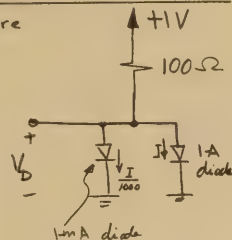 re
+1V
100Ω
+
V_D
-
I/1000
I
1-A
diode
1-mA diode